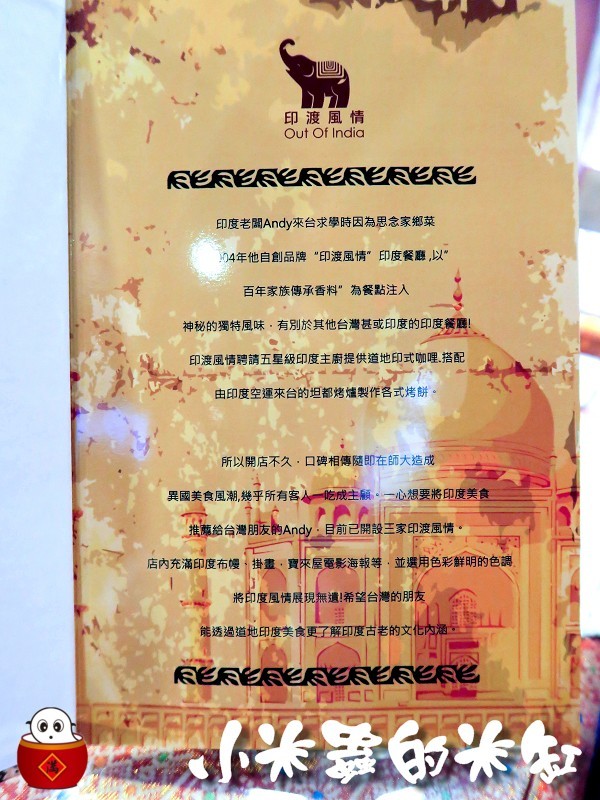 印渡風情
Out Of India
印度老闆Andy來台求學時因為思念家鄉菜
04年他自創品牌“印渡風情”印度餐廳,以”
百年家族傳承香料”為餐點注入
神秘的獨特風味，有別於其他台灣甚或印度的印度餐廳!
印渡風情聘請五星級印度主廚提供道地印式咖哩.搭配
由印度空運來台的坦都烤爐製作各式烤餅。
所以開店不久，口碑相傳隨即在師大造成
異國美食風潮,幾乎所有客人一吃成主顧。一心想要將印度美食
推薦給台灣朋友的Andy，目前已開設三家印渡風情。
店內充滿印度布幔、掛畫，寶來屋電影海報等，並選用色彩鮮明的色調
將印度風情展現無遺!希望台灣的朋友
能透過道地印度美食更了解印度古老的文化內涵。
小米蟲的米缸